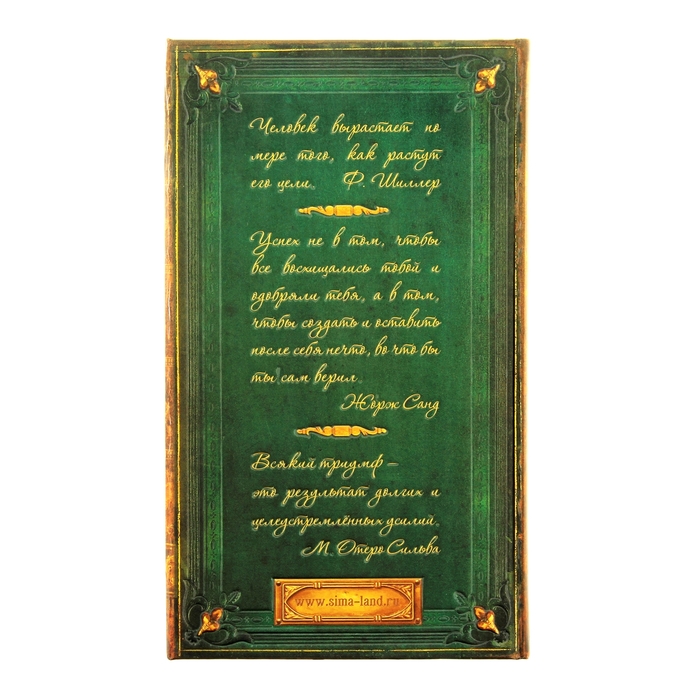 Человек вырастает по
мере того, как растут
его цели. Ф. Шиллер
Успех не в том, чтобы
все восхищались тобой и
одобряли тебя, а в том,
чтобы создать и оставить
после себя нечто, во что бы
ты сам верил.
Жорж Санд
Всякий триумф –
это результат долгих и
целеустремлённых усилий.
М. Отеро Сильва
www.sima-land.ru